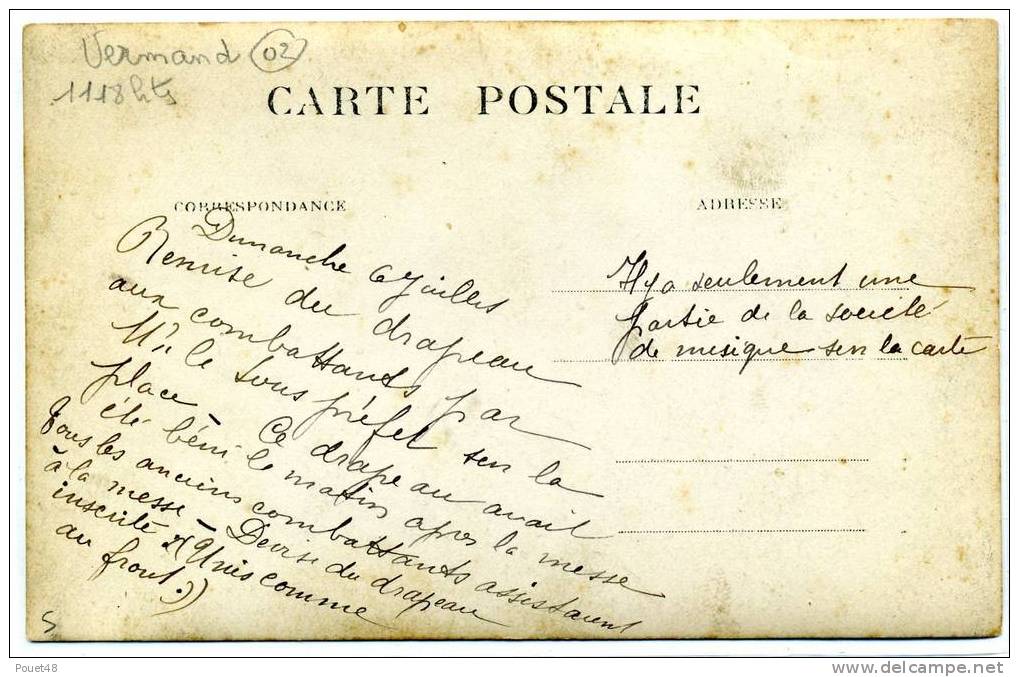 Vermand 02
1118 hts
CARTE POSTALE
CORRESPONDANCE
Dimanche 6 Juillet
Remise du drapeau
aux combattants par
Mr le sous préfet sur la
place – Ce drapeau avait
été béni le matin après la messe
Tous les anciens combattants assistaient
à la messe – Devise du drapeau
inscrite "Unis comme
au front."
ADRESSE
Il y a seulement une
partie de la société
de musique sur la carte
Pouet48
www.delcampe.net